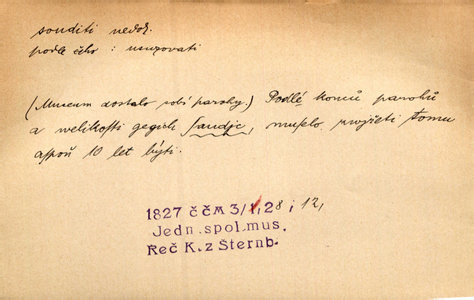 souditi nedok.
podle čeho : usuzovati
(Museum dostalo sobí parohy.) Podlé konců parohů
a welikosti gegich saudjc, muselo zwjřeti tomu
aspoň 10 let býti.
1827 ČČM 3/1, 28 ; 12,
Jedn. spol. mus.
Reč K. z Šternb.